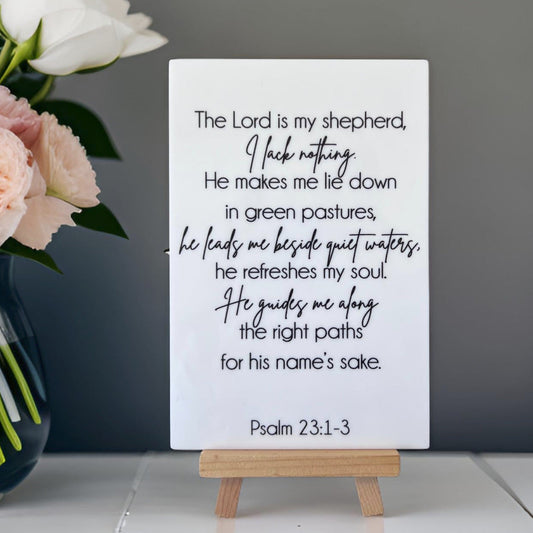 The Lord is my shepherd,
I lack nothing.
He makes me lie down
in green pastures,
he leads me beside quiet waters,
he refreshes my soul.
He guides me along
the right paths
for his name's sake.
Psalm 23:1-3